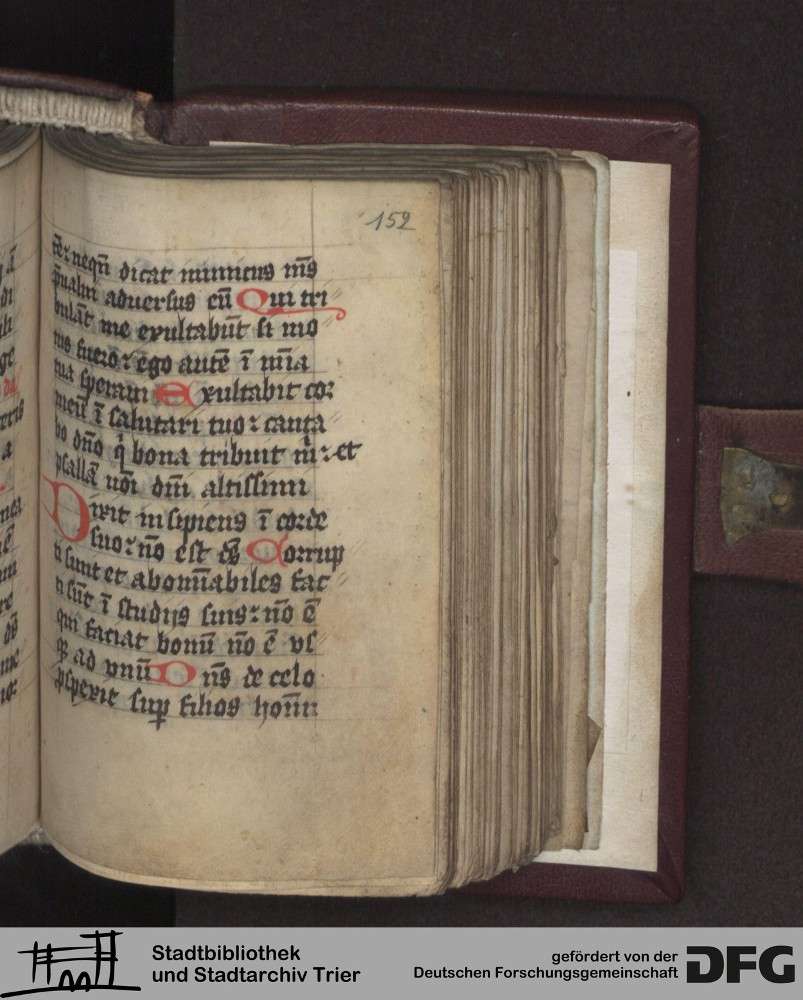 152
te: nequn̄ dicat inimicus m̄s
p̄ualui aduersus eū Qui tri
bulāt me exultabūt si mo
tus fuero: ego autē ī m̄ia
tua speraui Exultabit cor
meū ī salutari tuo: canta
bo dn̄o q̇ bona tribuit m̄: et
psallā noī dn̄i altissimi
Dixit insipiens ī corde
suo: nō est ds̄ Corrup
ti sunt et abomīabiles fac
ti sūt ī studijs suis: nō ē
qui faciat bonū nō ē vs
qꝫ ad vnū Dn̄s de celo
ꝓspexit suꝑ filios hoīn
Stadtbibliothek
und Stadtarchiv Trier
gefördert von der
Deutschen Forschungsgemeinschaft
DFG